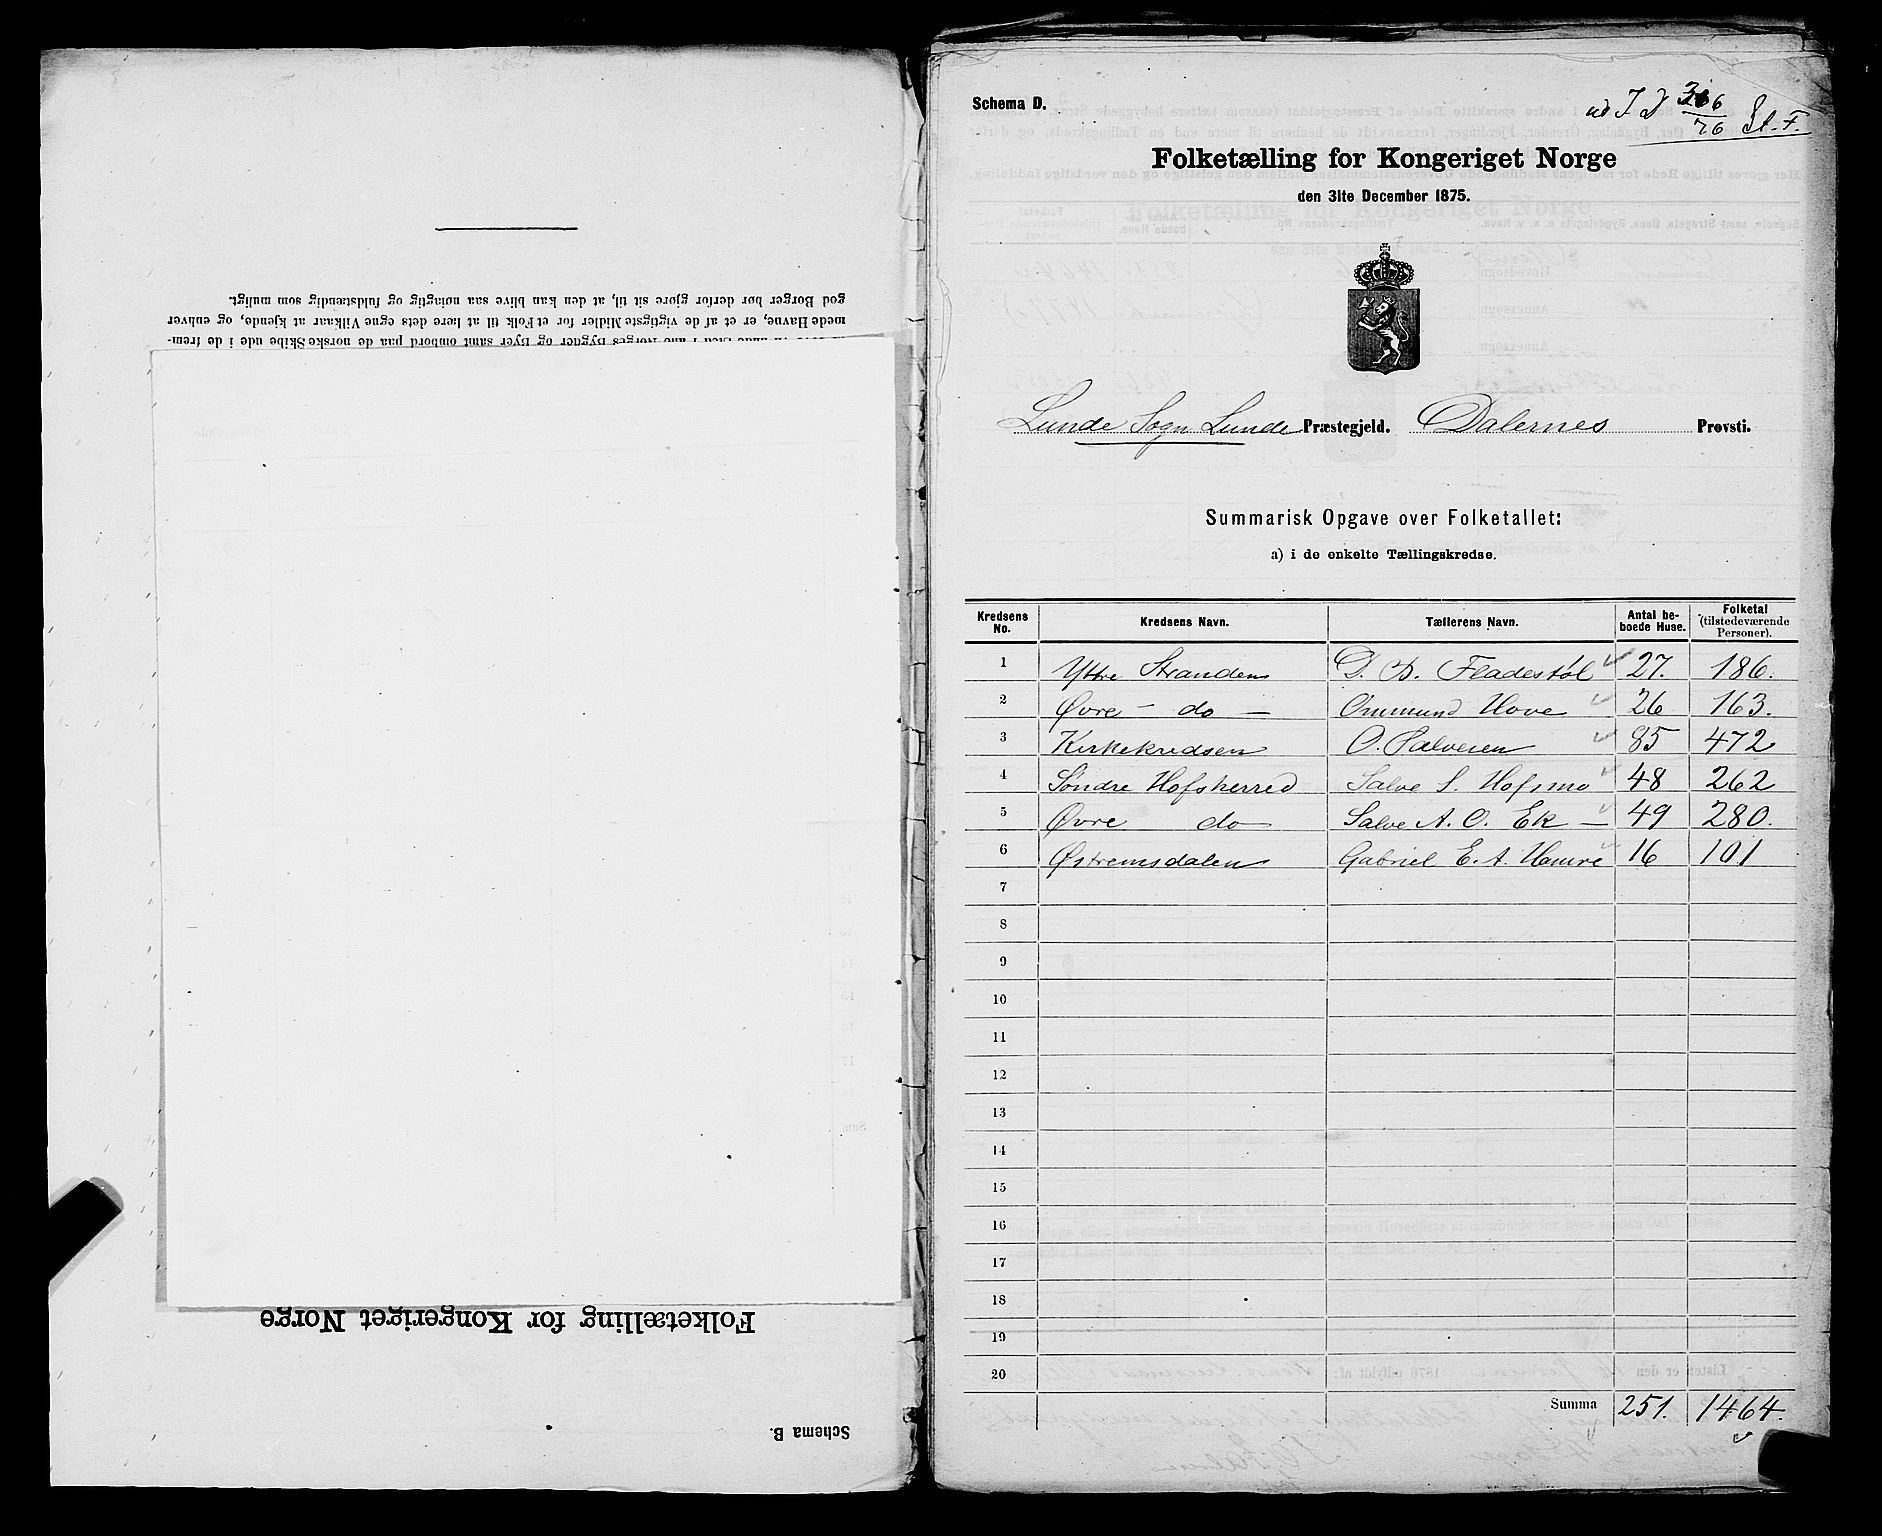 god Borger bør derfor gjøre sit til, at den kan blive saa nøiagtig og fuldstændig som muligt.
mede Havne, er et af de vigtigste Midler for et Folk til at lære dets egne Vilkaar at kjende, og enhver
Sted i alle Norges Bygder og Byer samt ombord paa de norske Skibe ude i de frem-
Folketælling for Kongeriget Norge
Schema B.
Schema D.
76 St. F.
Folketælling for Kongeriget Norge
den 31te December 1875.
Lunde Sogn Lunde Præstegjeld. Dalernes Provsti.
Summarisk Opgave over Folketallet:
a) i de enkelte Tællingskredse.
Kredsens No. Kredsens Navn. Tællerens Navn. Antal beboede Huse. Folketal (tilstedeværende Personer).
1 Yttre Stranden D. D. Fladestøl 27. 186.
2 Øvre – do – Ommund Hove 26 163.
3 Kirkekredsen O. Salvesen 85 472
4 Søndre Hofsherred Salve S. Hofsmo 48 262
5 Øvre do Salve A. O. Ek – 49 280.
6 Østremsdalen Gabriel E. A. Hamre 16 101
7
8
9
10
11
12
13
14
15
16
17
18
19
20
Summa 251. 1464.